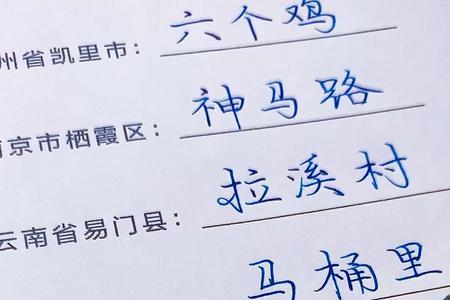 州省凯里市：六个鸡
南京市栖霞区：神马路
云南省易门县：拉溪村
马桶里